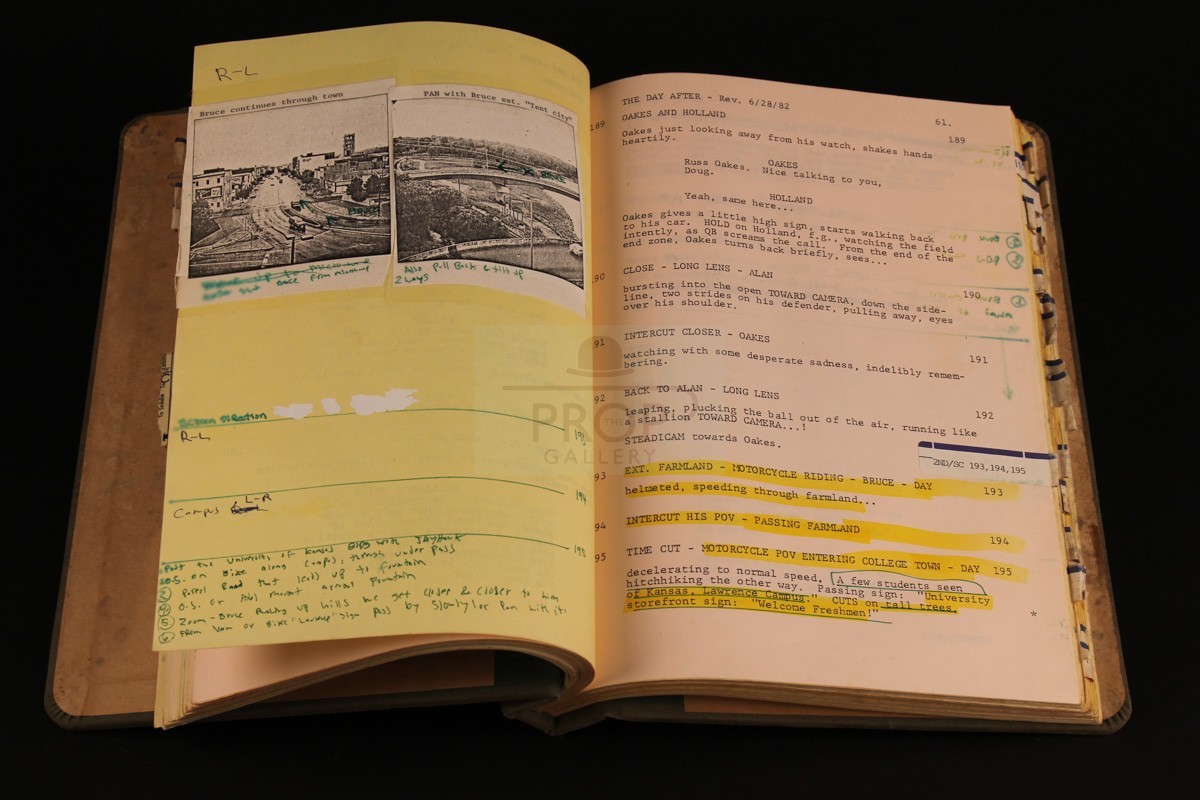 R-L
Bruce continues through town
PAN with Bruce est. "Tent city"
BRUCE
BRUCE
Also pull Back & tilt up
2 ways
Screen Direction
R-L
193
194
Campus L-R
195
Past the University of Kansas with Jayhawk
O.S. on Bike along Campus, through under pass
Road that leads up to fountain
O.S. or around Fountain
⑤ Zoom - Bruce up hills we get closer & closer to him
⑥ From Van or Bike "Lawrence" sign pass by slowly or Pan with it
THE DAY AFTER - Rev. 6/28/82
61.
OAKES AND HOLLAND
189
189
Oakes just looking away from his watch, shakes hands
heartily.
OAKES
Russ Oakes. Nice talking to you,
Doug.
HOLLAND
Yeah, same here...
Oakes gives a little high sign, starts walking back
to his car. HOLD on Holland, f.g., watching the field
intently, as QB screams the call. From the end of the
end zone, Oakes turns back briefly, sees...
90
CLOSE - LONG LENS - ALAN
190
bursting into the open TOWARD CAMERA, down the side-
line, two strides on his defender, pulling away, eyes
over his shoulder.
91
INTERCUT CLOSER - OAKES
191
watching with some desperate sadness, indelibly remem-
bering.
92
BACK TO ALAN - LONG LENS
192
leaping, plucking the ball out of the air, running like
a stallion TOWARD CAMERA...!
STEADICAM towards Oakes.
2ND/SC 193,194,195
93
EXT. FARMLAND - MOTORCYCLE RIDING - BRUCE - DAY
193
helmeted, speeding through farmland...
94
INTERCUT HIS POV - PASSING FARMLAND
194
95
TIME CUT - MOTORCYCLE POV ENTERING COLLEGE TOWN - DAY
195
decelerating to normal speed. A few students seen
hitchhiking the other way. Passing sign: "University
of Kansas, Lawrence Campus." CUTS on tall trees,
storefront sign: "Welcome Freshmen!"
*
THE
PROP
GALLERY